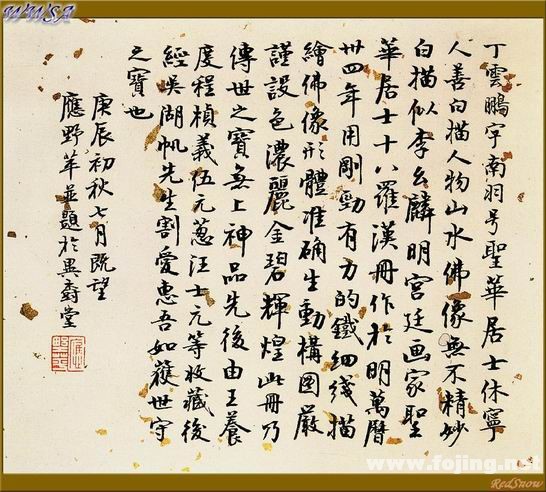 WWSA
丁雲鵬字南羽号聖華居士休寧
人善白描人物山水佛像無不精妙
白描似李公麟明宮廷画家聖
華居士十八羅漢冊作於明萬曆
卅四年用剛勁有力的鐵細线描
繪佛像形體准确生動構图嚴
謹設色濃麗金碧輝煌此冊乃
傳世之寶無上神品先後由王養
度程楨義伍元蕙汪士元等收藏後
經吳湖帆先生割愛惠吾如獲世守
之寶也
庚辰初秋七月既望
應野苹並題於異壽堂
www.fojing.net
RedSnow